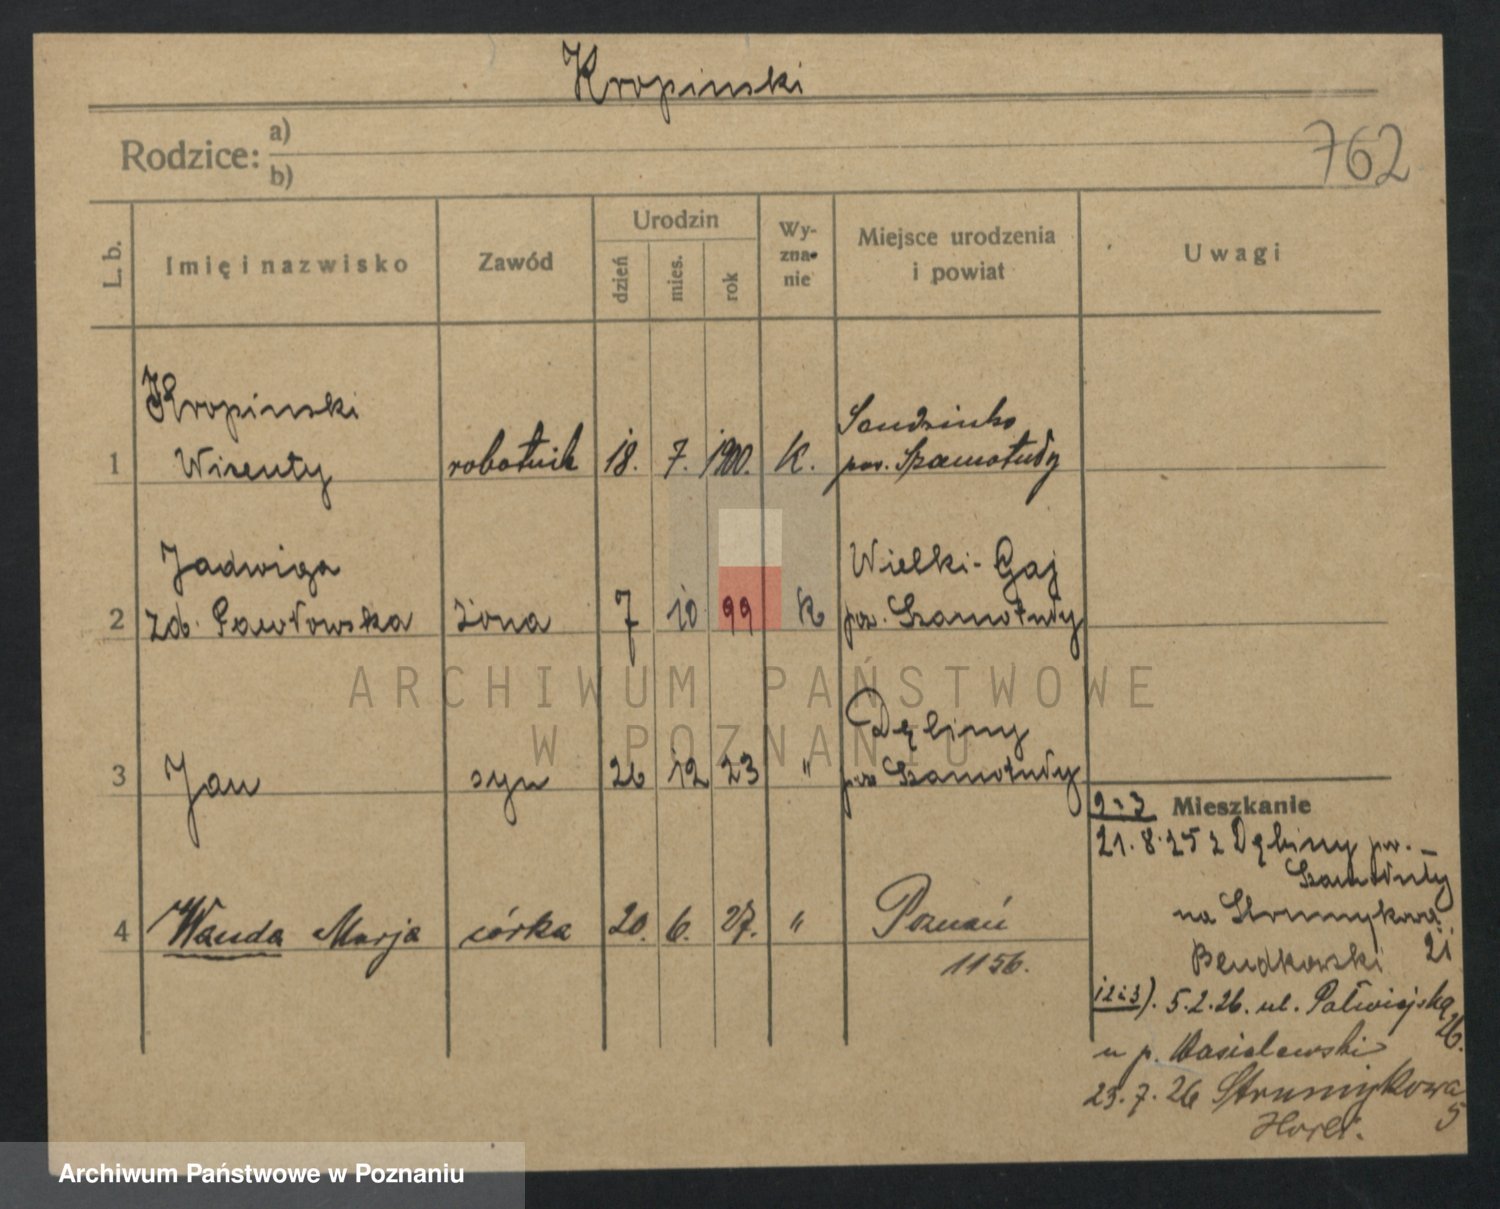 Kropinski
762
Rodzice: a)
b)
L. b.
Imię i nazwisko
Zawód
Urodzin
dzień
mies.
rok
Wy-
zna-
nie
Miejsce urodzenia
i powiat
Uwagi
Kropinski
Sendzinko
1 robotnik 18. 7. 1900. K. pow. Szamotuły
Jadwiga Wielki-Gaj
2 zd. Pawłowska żona 7 10 99 K pow. Szamotuły
Dębiny
3 Jan syn 26 12 23 " pow Szamotuły
4 Wanda Marja córka 20. 6. 27. " Poznań
1156.
Mieszkanie
21.8.25 z Dębiny pow.
Szamotuły
na Strumykową
21
Bendkowski
5.2.26. ul. Półwiejska
26.
u p. Wasielewski
23.7.26 Strumykowa
5
ARCHIWUM PAŃSTWOWE
W POZNANIU
Archiwum Państwowe w Poznaniu